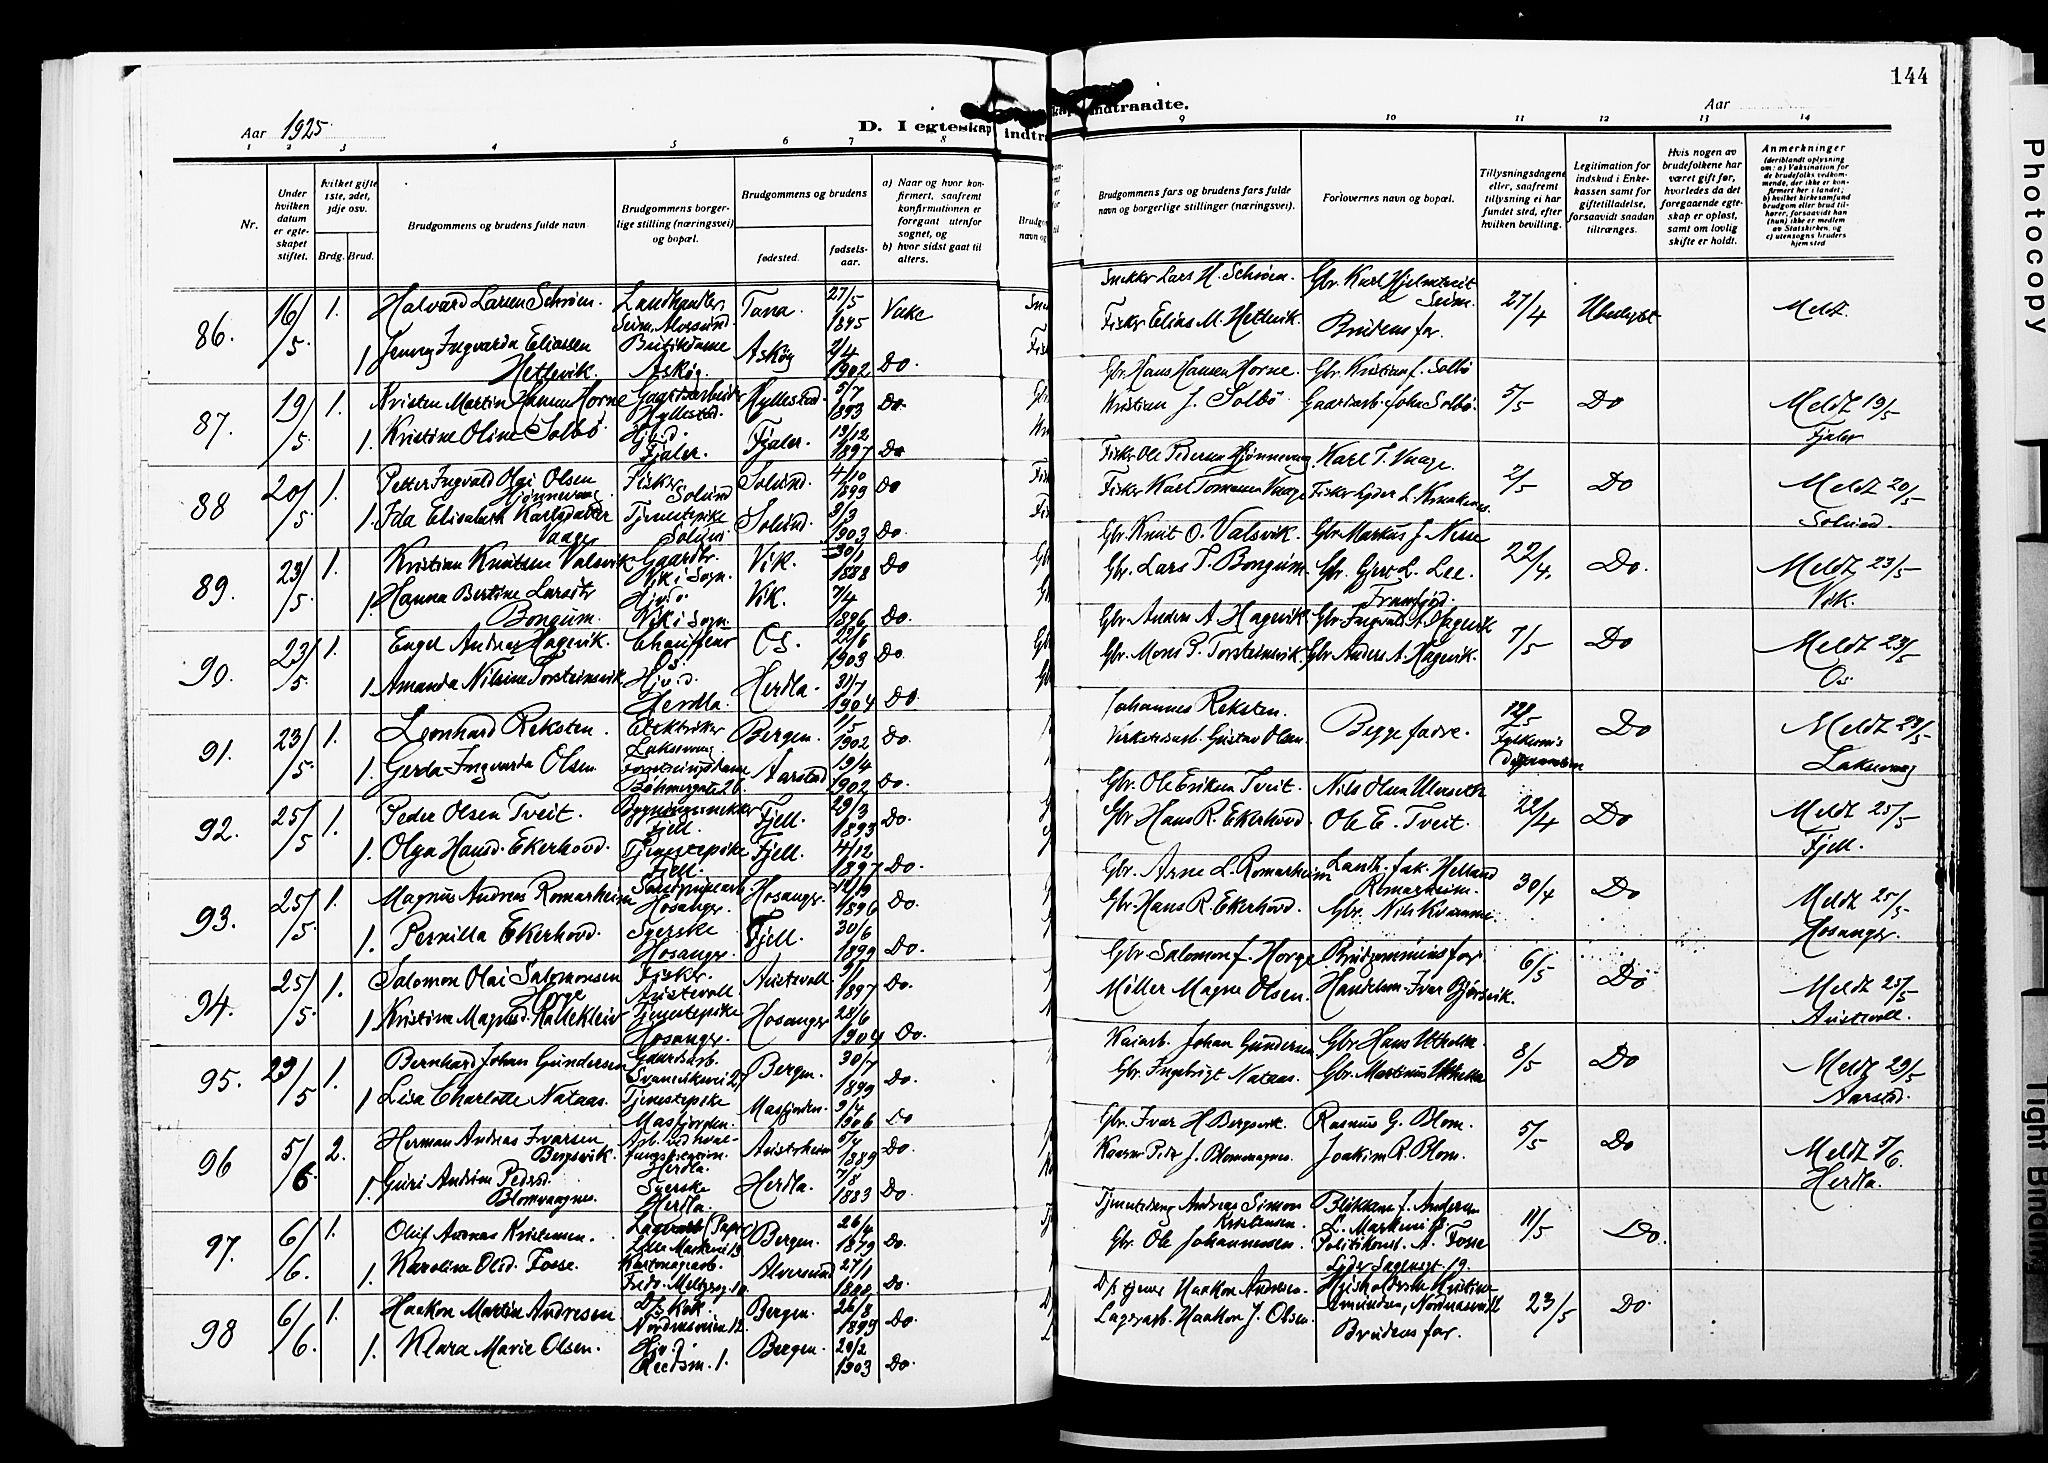 144
Aar 1925
D. I egteskap indtraadte.
Aar
1 2 3 4 5 6 7 8 9 10 11 12 13 14
Nr.
Under hvilken datum er egteskapet stiftet.
hvilket gifte 1ste, 2det, 3dje osv.
Brdg. Brud.
Brudgommens og brudens fulde navn
Brudgommens borgerlige stilling (næringsvei) og bopæl.
Brudgommens og brudens
fødested.
fødselsaar.
a) Naar og hvor konfirmert, saafremt konfirmationen er foregaat utenfor sognet, og
b) hvor sidst gaat til alters.
Brudgommens fars og brudens fars fulde navn og borgerlige stillinger (næringsvei).
Forlovernes navn og bopæl.
Tillysningsdagene eller, saafremt tillysning ei har fundet sted, efter hvilken bevilling.
Legitimation for indskud i Enkekassen samt for giftetilladelse, forsaavidt saadan tiltrænges.
Hvis nogen av brudefolkene har været gift før, hvorledes da det foregaaende egteskap er opløst, samt om lovlig skifte er holdt.
Anmerkninger
(deriblandt oplysning om: a) Vaksination for de brudefolks vedkommende, der ikke er konfirmert her i landet; b) hvilket kirkesamfund brudgom eller brud tilhører, forsaavidt han (hun) ikke er medlem av Statskirken, og c) utensogns bruders hjemsted
86. 16/5 1. Halvard Larsen Schrøen. Landhandler Seim, Alversund. Tana. 27/5 1895 Snekker Lars H. Schrøen. Gbr. Karl Hjelmtveit Seim. 27/4 Meldt.
1 Jenny Ingvarda Eliassen Hetlevik. Butikdame Askøy. Askøy 2/4 1902 Do. Fisker Elias M. Hetlevik. Brudens far.
87. 19/5 1. Kristen Martin Hansen Horne Gaardsarbeider Hyllestad. Hyllestad. 5/7 1893 Do. Gbr. Hans Hansen Horne. Gbr. Kristian J. Solbø 5/5 Do Meldt 19/5
1. Kristine Oline Solbø. Hjv.d. Fjaler. Fjaler. 13/12 1897 Do Kristian J. Solbø Gaardsarb. John Solbø. Fjaler
88 20/5 1. Petter Ingvald Olai Olsen Hjønnevaag Fisker Solund Solund. 4/10 1899 Do Fisker Ole Pedersen Hjønnevaag Karl T. Vaage. 2/5 Do Meldt 20/5
1. Ida Elisabeth Karlsdatter Vaage Tjenestepike Solund Solund. 3/3 1903 Do. Fisker Karl Tomassen Vaage Solund.
89. 23/5 1. Kristian Knutsen Valsvik Gaardbr. Vik i Sogn. Vik. 30/1 1888 Do Gbr. Knut O. Valsvik. Gbr. Markus J. Nesse 22/4. Do. Meldt 23/5
1. Hanna Bertine Larsdtr Bongum. Vik i Sogn. Vik. 7/4 1896 Do. Gbr. Lars T. Bongum. Gbr. Gjert L. Lee. Framfjord. Vik.
90. 23/5 1. Engel Andreas Hagevik. Chauffeur Os. Os. 22/6 1903 Do. Gbr. Anders A. Hagevik. Gbr. Ingvald A. Hagevik 7/5 Do Meldt 23/5
1. Amanda Nilsine Torsteinsvik Hjv.d. Herdla. Herdla. 31/7 1904 Do Gbr. Mons P. Torsteinsvik. Gbr. Anders A. Hagevik. Os
91. 23/5 1. Leonhard Reksten. Elektriker Laksevaag. Bergen. 1/5 1902 Do. Johannes Reksten. Begge fædre. Do Meldt 23/5
1. Gerda Ingvarda Olsen. Forretningsdame Böhmergate 26. Aarstad 19/4 1902 Do. Verkstedarb. Gustav Olsen Laksevaag
92. 25/5 1. Peder Olsen Tveit. Bygningssnekker Fjell. Fjell. 29/3 1893 Do. Gbr. Ole Eriksen Tveit. Nils Olsen 22/4 Do Meldt 25/5
1. Olga Hansd. Ekerhovd. Tjenestepike Fjell. Fjell. 4/12 1897 Do. Gbr. Hans R. Ekerhovd. Ole E. Tveit. Fjell.
93. 25/5 1. Magnus Andreas Romarheim Hosanger. Hosanger. 12/9 1896 Do. Gbr. Arne L. Romarheim Landh. Jak. Helland Romarheim. 30/4 Do Meldt 25/5
1. Pernilla Ekerhovd. Syerske Hosanger. Fjell. 30/6 1899 Do. Gbr. Hans R. Ekerhovd. Gbr. Nils Kvamme. Hosanger.
94. 25/5 1. Salomon Olai Salomonsen Horge Fisker. Austevoll. Austevoll. 9/1 1897 Do. Gbr. Salomon J. Horge Brudgommens far. 6/5 Do Meldt 25/5
1 Kristina Magnesd. Kallekleiv Tjenestepike Hosanger. Hosanger 28/6 1904 Do. Møller Magne Olsen. Handelsm. Ivar Bjørsvik. Austevoll.
95. 29/5 1. Bernhard Johan Gundersen Gaardsarb. Bergen. 30/7 1899 Do. Kaiarb. Johan Gundersen Gbr. Hans 8/5 Do Meldt 29/5
1 Lisa Charlotte Nataas. Tjenestepike Masfjorden. Masfjorden. 9/4 1906 Do Gbr. Ingebrigt Nataas. Gbr. Martinus Aarstad.
96 5/6 2. Herman Andreas Ivarsen Bergsvik. Herdla. Austrheim 5/4 1889 Do. Gbr. Ivar H. Bergsvik. Rasmus G. Blom. 5/5 Do Meldt 5/6.
1. Guri Andrina Pedersd. Blomvaagnes. Syerske Herdla. Herdla. 7/8 1883 Do. Peter J. Blomvaagnes. Joakim R. Blom. Herdla.
97. 6/6. 1. Oluf Andreas Kristensen. Bergen. 26/4 1879 Do. Andreas Simon Kristensen. 11/5 Do.
1. Karoline Olsd. Fosse. Kartonagearb. Alversund 27/1 Do. Gbr. Ole Johannessen. Politikonst. A. Fosse
98 6/6. 1. Haakon Martin Andresen D/s Kok. Bergen. 26/8 1899 Do. Haakon Andresen. 23/5 Do.
1. Klara Marie Olsen. Hjv.d. Bergen. 20/2 1903 Do. Lagerarb. Haakon J. Olsen. Brudens far.
Photocopy
Tight Binding